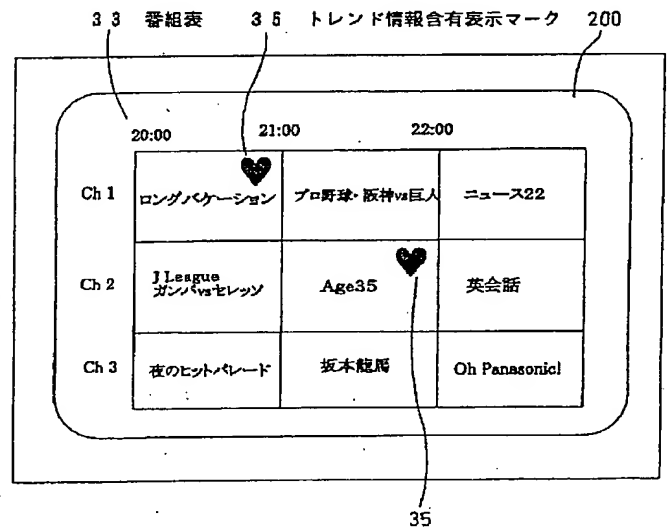 33 番組表 35 トレンド情報含有表示マーク 200
20:00 21:00 22:00
Ch 1 ロングバケーション プロ野球・阪神vs巨人 ニュース22
Ch 2 J League ガンバvsセレッソ Age35 英会話
Ch 3 夜のヒットパレード 坂本龍馬 Oh Panasonic!
35